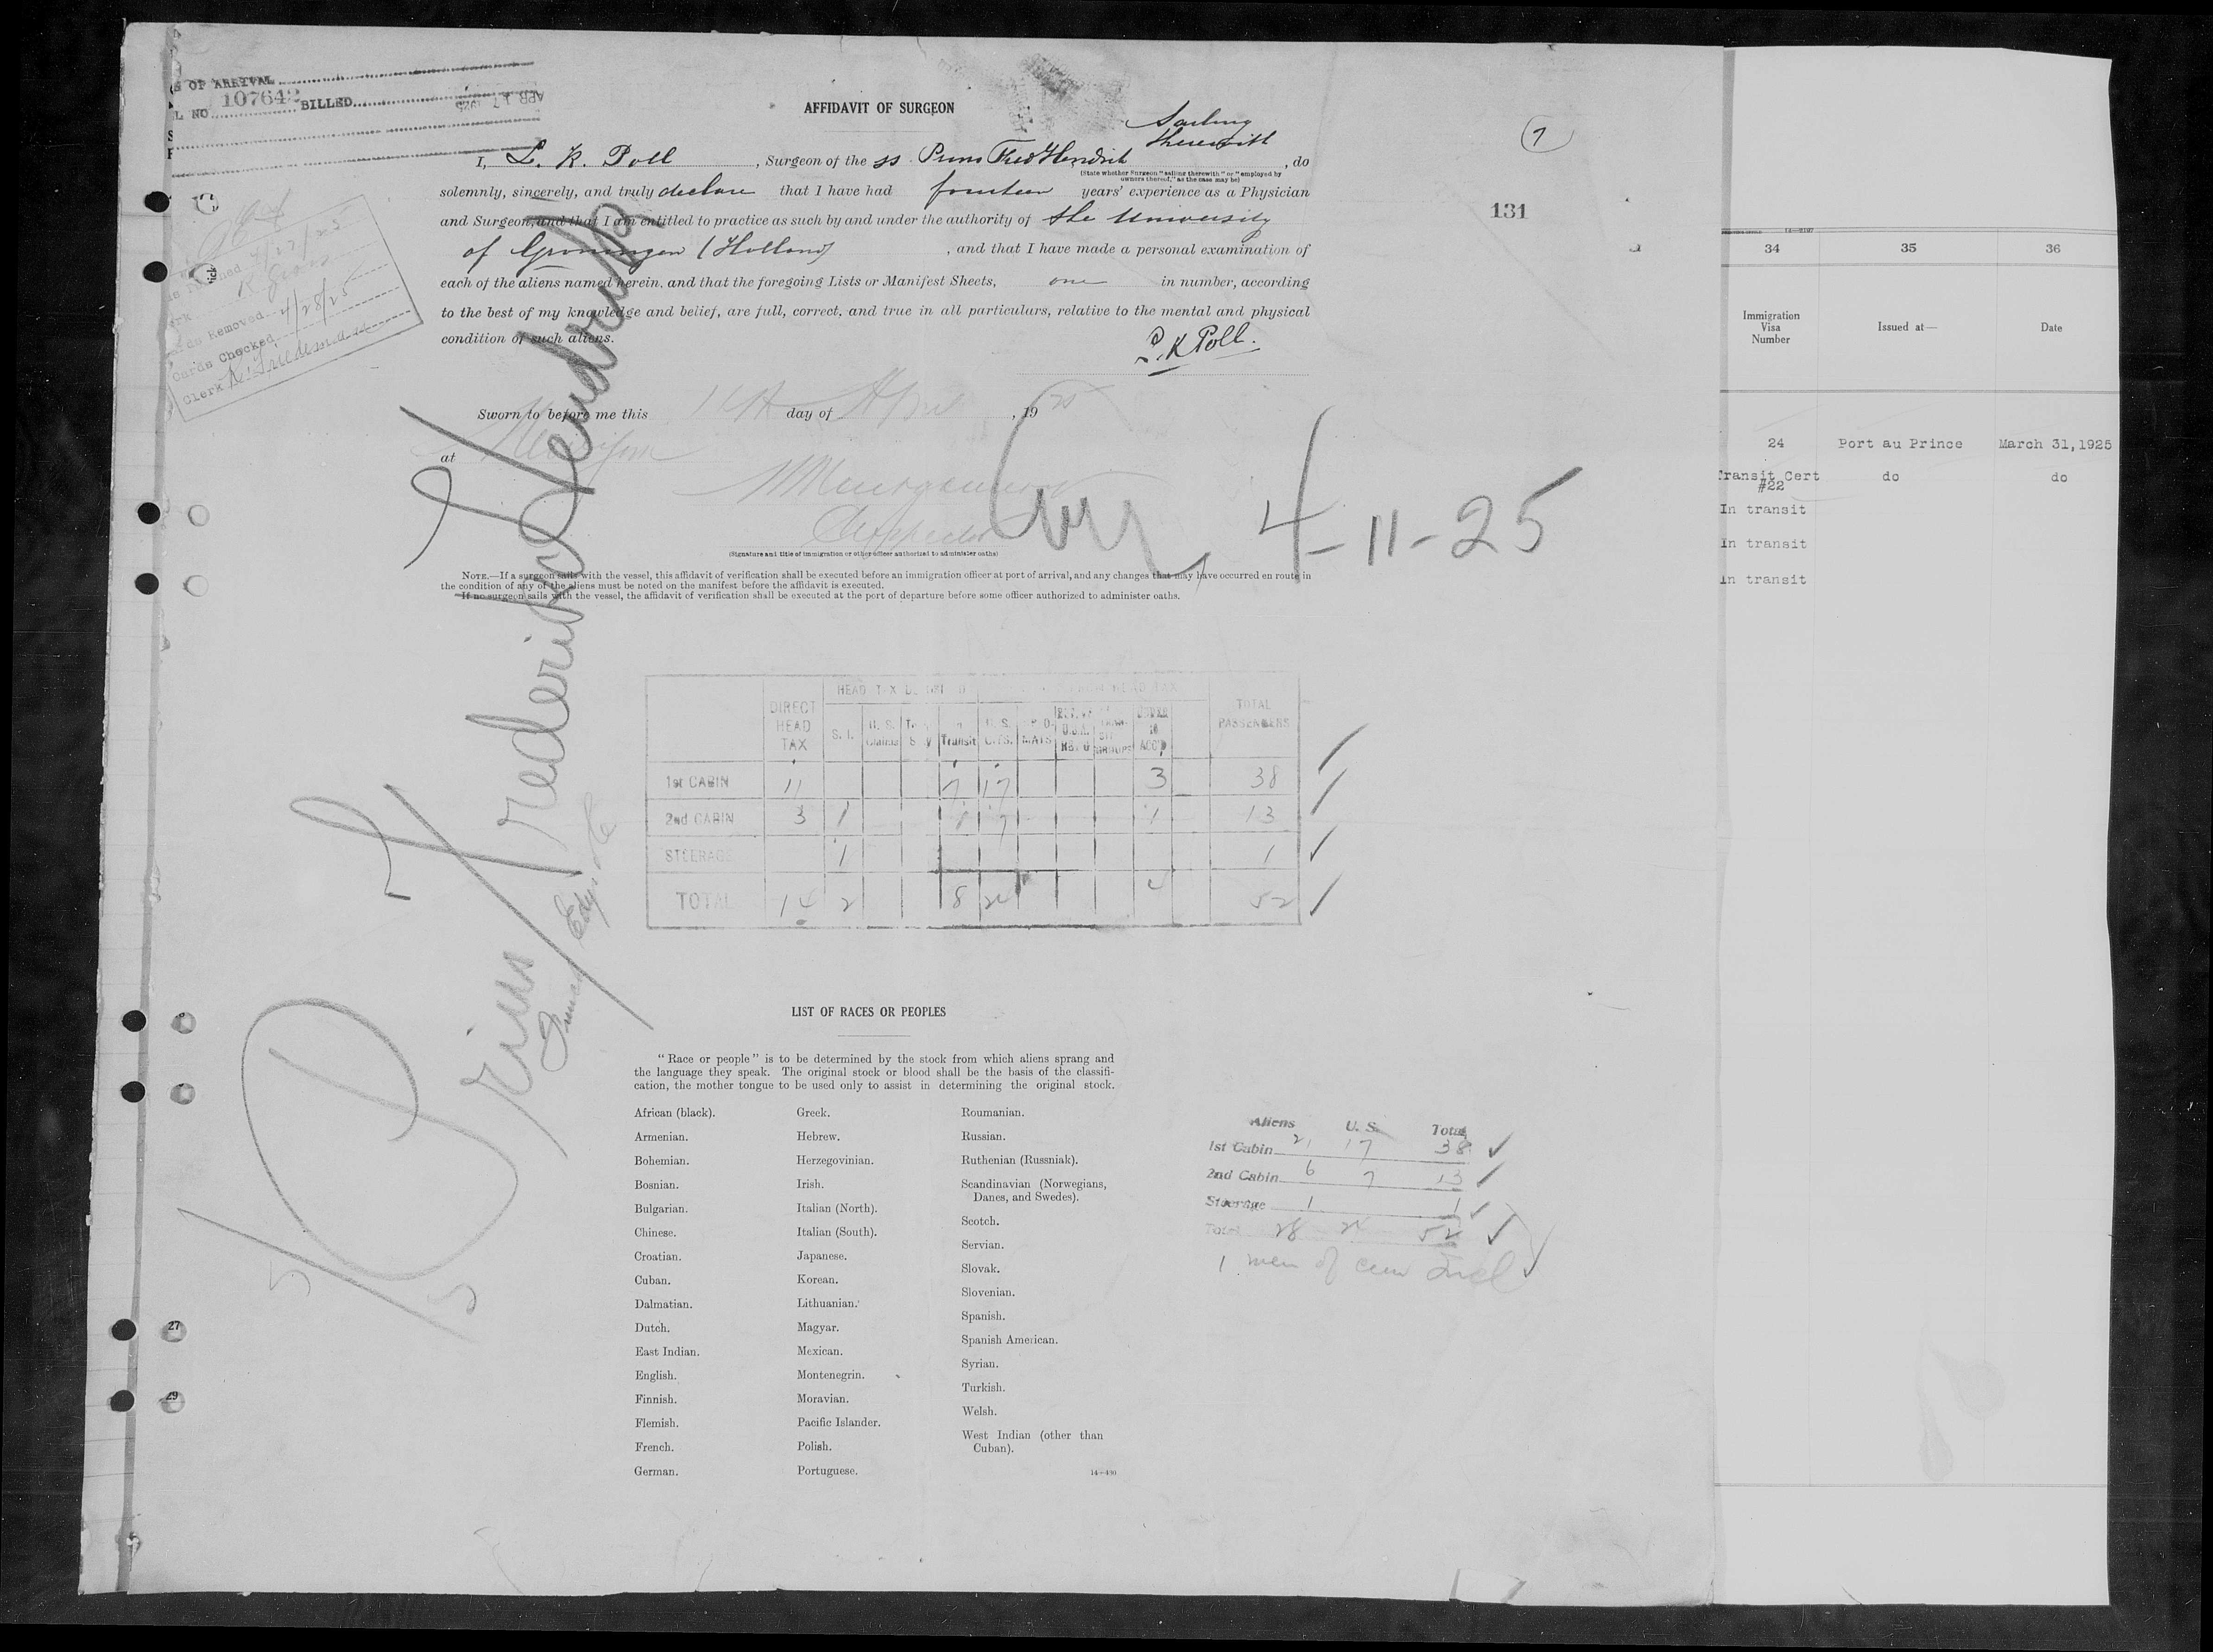 OF ARRIVAL
L NO 107642 BILLED APR 17 1925
4/27/25
Removed 4/28/25
Cards Checked
Clerk
AFFIDAVIT OF SURGEON
Sailing
therewith
7
I, L. K. Poll, Surgeon of the ss Prins Fred Hendrik, do
(State whether Surgeon "sailing therewith" or "employed by
owners thereof," as the case may be)
solemnly, sincerely, and truly declare that I have had fourteen years' experience as a Physician
and Surgeon, and that I am entitled to practice as such by and under the authority of the University
131
of Groningen (Holland), and that I have made a personal examination of
each of the aliens named herein, and that the foregoing Lists or Manifest Sheets, one in number, according
to the best of my knowledge and belief, are full, correct, and true in all particulars, relative to the mental and physical
condition of such aliens.
L. K Poll.
Sworn to before me this day of April, 19 25
at
Inspector
4-11-25
(Signature and title of immigration or other officer authorized to administer oaths)
NOTE.—If a surgeon sails with the vessel, this affidavit of verification shall be executed before an immigration officer at port of arrival, and any changes that may have occurred en route in
the condition of any of the aliens must be noted on the manifest before the affidavit is executed.
If no surgeon sails with the vessel, the affidavit of verification shall be executed at the port of departure before some officer authorized to administer oaths.
Prins Frederik Hendrik
HEAD TAX
DIRECT HEAD TAX S. I. U. S. Claims In Transit U. S. CITS. UNDER 16 ACC'D TOTAL PASSENGERS
1st CABIN 11 7 17 3 38
2nd CABIN 3 1 1 7 1 13
STEERAGE 1 1
TOTAL 14 2 8 24 4 52
LIST OF RACES OR PEOPLES
"Race or people" is to be determined by the stock from which aliens sprang and
the language they speak. The original stock or blood shall be the basis of the classifi-
cation, the mother tongue to be used only to assist in determining the original stock.
African (black).
Armenian.
Bohemian.
Bosnian.
Bulgarian.
Chinese.
Croatian.
Cuban.
Dalmatian.
Dutch.
East Indian.
English.
Finnish.
Flemish.
French.
German.
Greek.
Hebrew.
Herzegovinian.
Irish.
Italian (North).
Italian (South).
Japanese.
Korean.
Lithuanian.
Magyar.
Mexican.
Montenegrin.
Moravian.
Pacific Islander.
Polish.
Portuguese.
Roumanian.
Russian.
Ruthenian (Russniak).
Scandinavian (Norwegians,
Danes, and Swedes).
Scotch.
Servian.
Slovak.
Slovenian.
Spanish.
Spanish American.
Syrian.
Turkish.
Welsh.
West Indian (other than
Cuban).
14—430
Aliens U. S. Total
1st Cabin 21 17 38
2nd Cabin 6 7 13
Steerage 1 1
Total 28 24 52
1 men of crew Incl
27
29
34 35 36
Immigration
Visa
Number
Issued at—
Date
24 Port au Prince March 31,1925
Transit Cert do do
#22
In transit
In transit
In transit